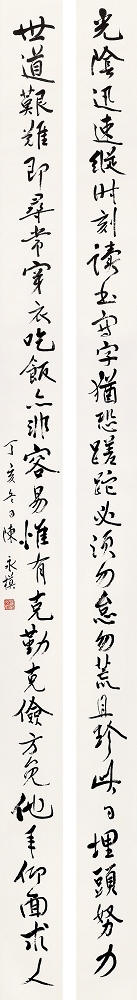 光陰迅速縱時刻讀书寫字猶恐蹉跎必須勿怠勿荒且珍此日埋頭努力
世道艱難即尋常穿衣吃飯亦非容易惟有克勤克儉方免他年仰面求人
丁亥冬日陳永模